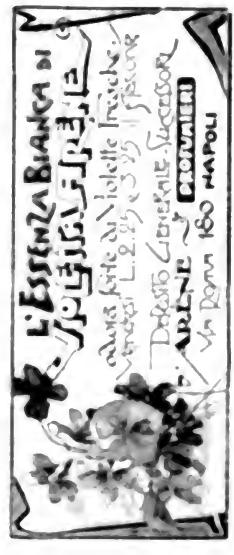 L'ESSENZA BIANCA DI
odora forte di Violette Fresche.
Vendesi L. 2.25 e 3.95 il flacone
DEPOSITO GENERALE SUCCESSORI
ARÈNE PROFUMIERI
VIA ROMA 180 NAPOLI